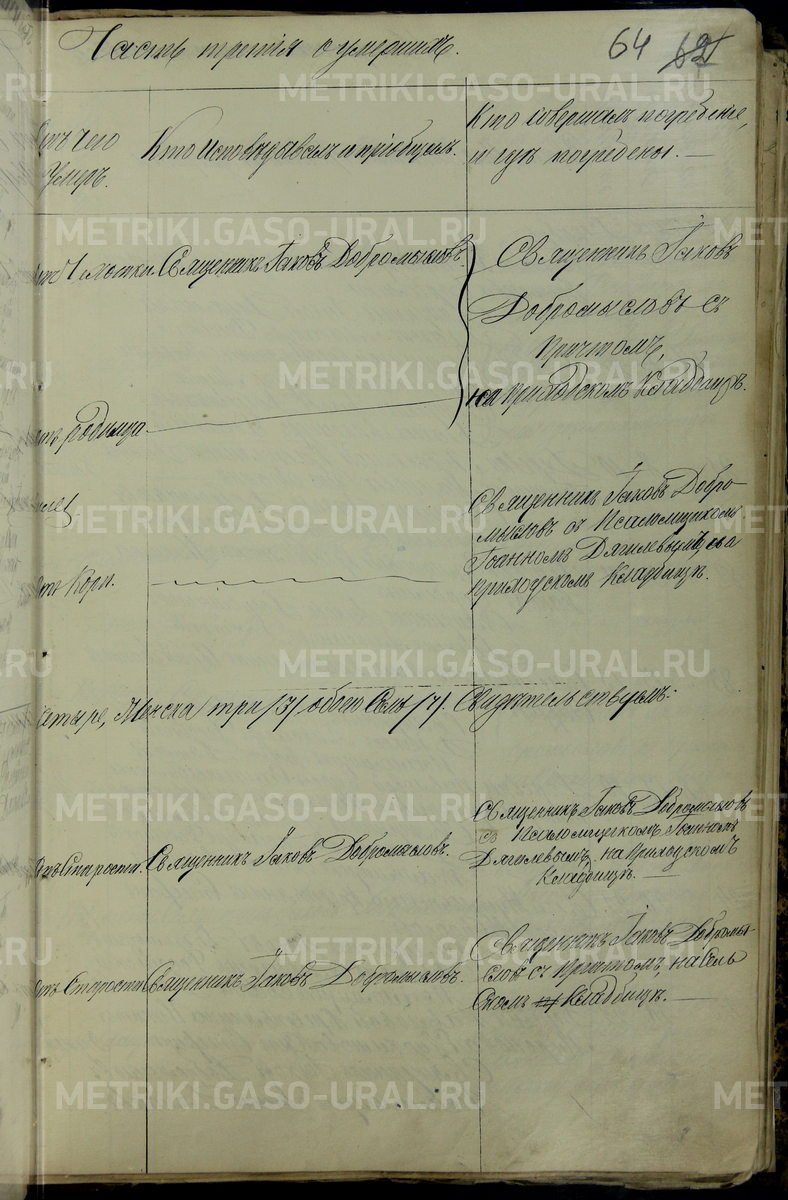 Часть третія о умершихъ. 64
Отъ чего
умеръ.
Кто исповѣдавалъ и пріобщалъ.
Кто совершалъ погребеніе,
и гдѣ погребены. —
Отъ Чахотки. Священникъ Іаковъ Добромысловъ.
Священникъ Іаковъ
Добромысловъ съ
Причтомъ,
на Приходскомъ Кладбищѣ.
Отъ родимца.
Священникъ Іаковъ Добро-
мысловъ съ Псаломщикомъ
Іоанномъ Дягилевымъ, на
Приходскомъ Кладбищѣ.
Отъ Кори.
четыре, Женска три /3/ обоего Семь /7/. Свидѣтельствуемъ:
Отъ Старости. Священникъ Іаковъ Добромысловъ.
Священникъ Іаковъ Добромысловъ
съ Псаломщикомъ Іоанномъ
Дягилевымъ, на Приходскомъ
Кладбищѣ. —
Отъ Старости. Священникъ Іаковъ Добромысловъ.
Священникъ Іаковъ Добромы-
словъ съ Причтомъ, на Сель
скомъ Кладбищѣ. —
METRIKI.GASO-URAL.RU